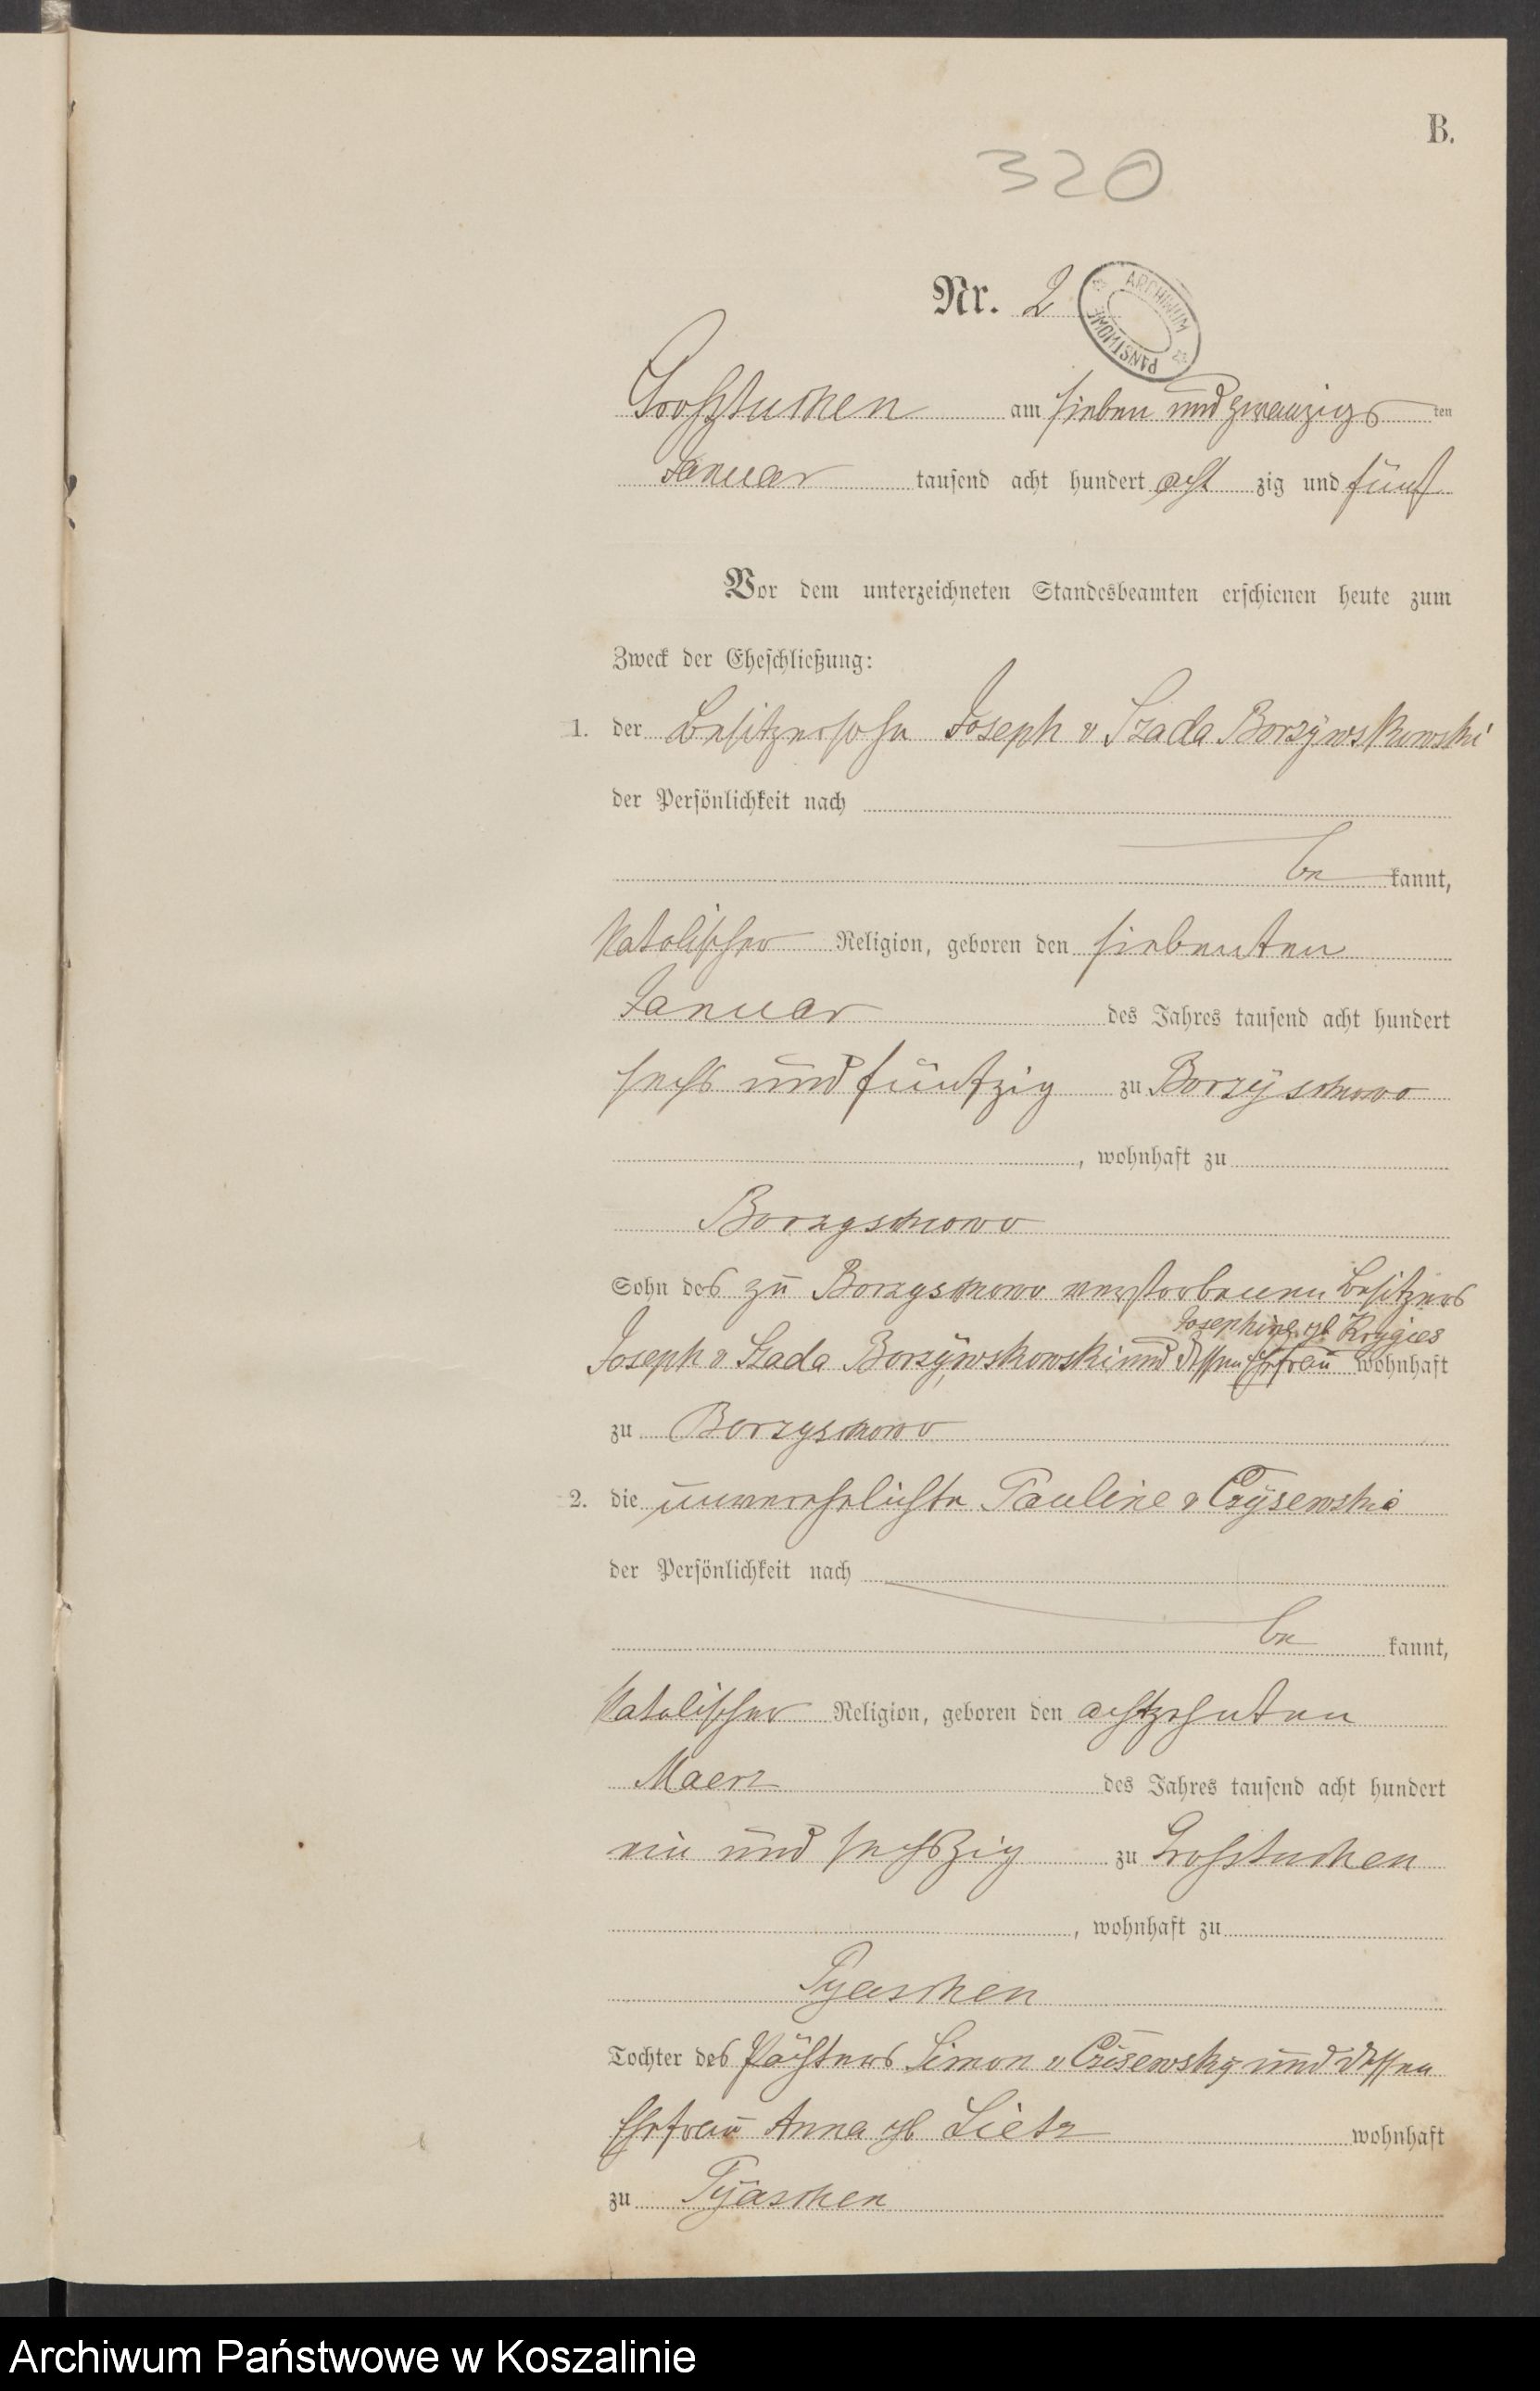 B.
320
Nr. 2
ARCHIWUM PAŃSTWOWE
Großtuchen am sieben und zwanzigs ten
Januar tausend acht hundert acht zig und fünf
Vor dem unterzeichneten Standesbeamten erschienen heute zum
Zweck der Eheschließung:
1. der Besitzersohn Joseph v Szada Borzÿwskowski
der Persönlichkeit nach
be kannt,
katolischer Religion, geboren den siebenten
Januar des Jahres tausend acht hundert
sechs und fünfzig zu Borzÿschkowo
, wohnhaft zu
Borzyschkowo
Sohn des zu Borzyschkowo verstorbenen Besitzers
Josephine gb
Joseph v Szada Borzÿwskowski und dessen Ehefrau wohnhaft
zu Borzyschkowo
2. die unverehelichte Pauline v Czÿsewski
der Persönlichkeit nach
be kannt,
katolischer Religion, geboren den achtzehnten
Maerz des Jahres tausend acht hundert
ein und sechszig zu Großtuchen
, wohnhaft zu
Pyaschen
Tochter des Pächters Simon v Czisewsky und dessen
Ehefrau Anna gb Lietz wohnhaft
zu Pÿaschen
Archiwum Państwowe w Koszalinie